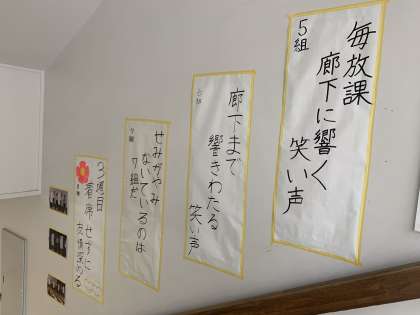 毎放課
廊下に響く
笑い声
5組
廊下まで
響きわたる
笑い声
せみがやみ
ないているのは
7組だ
3週目
着席せずに
友情深める